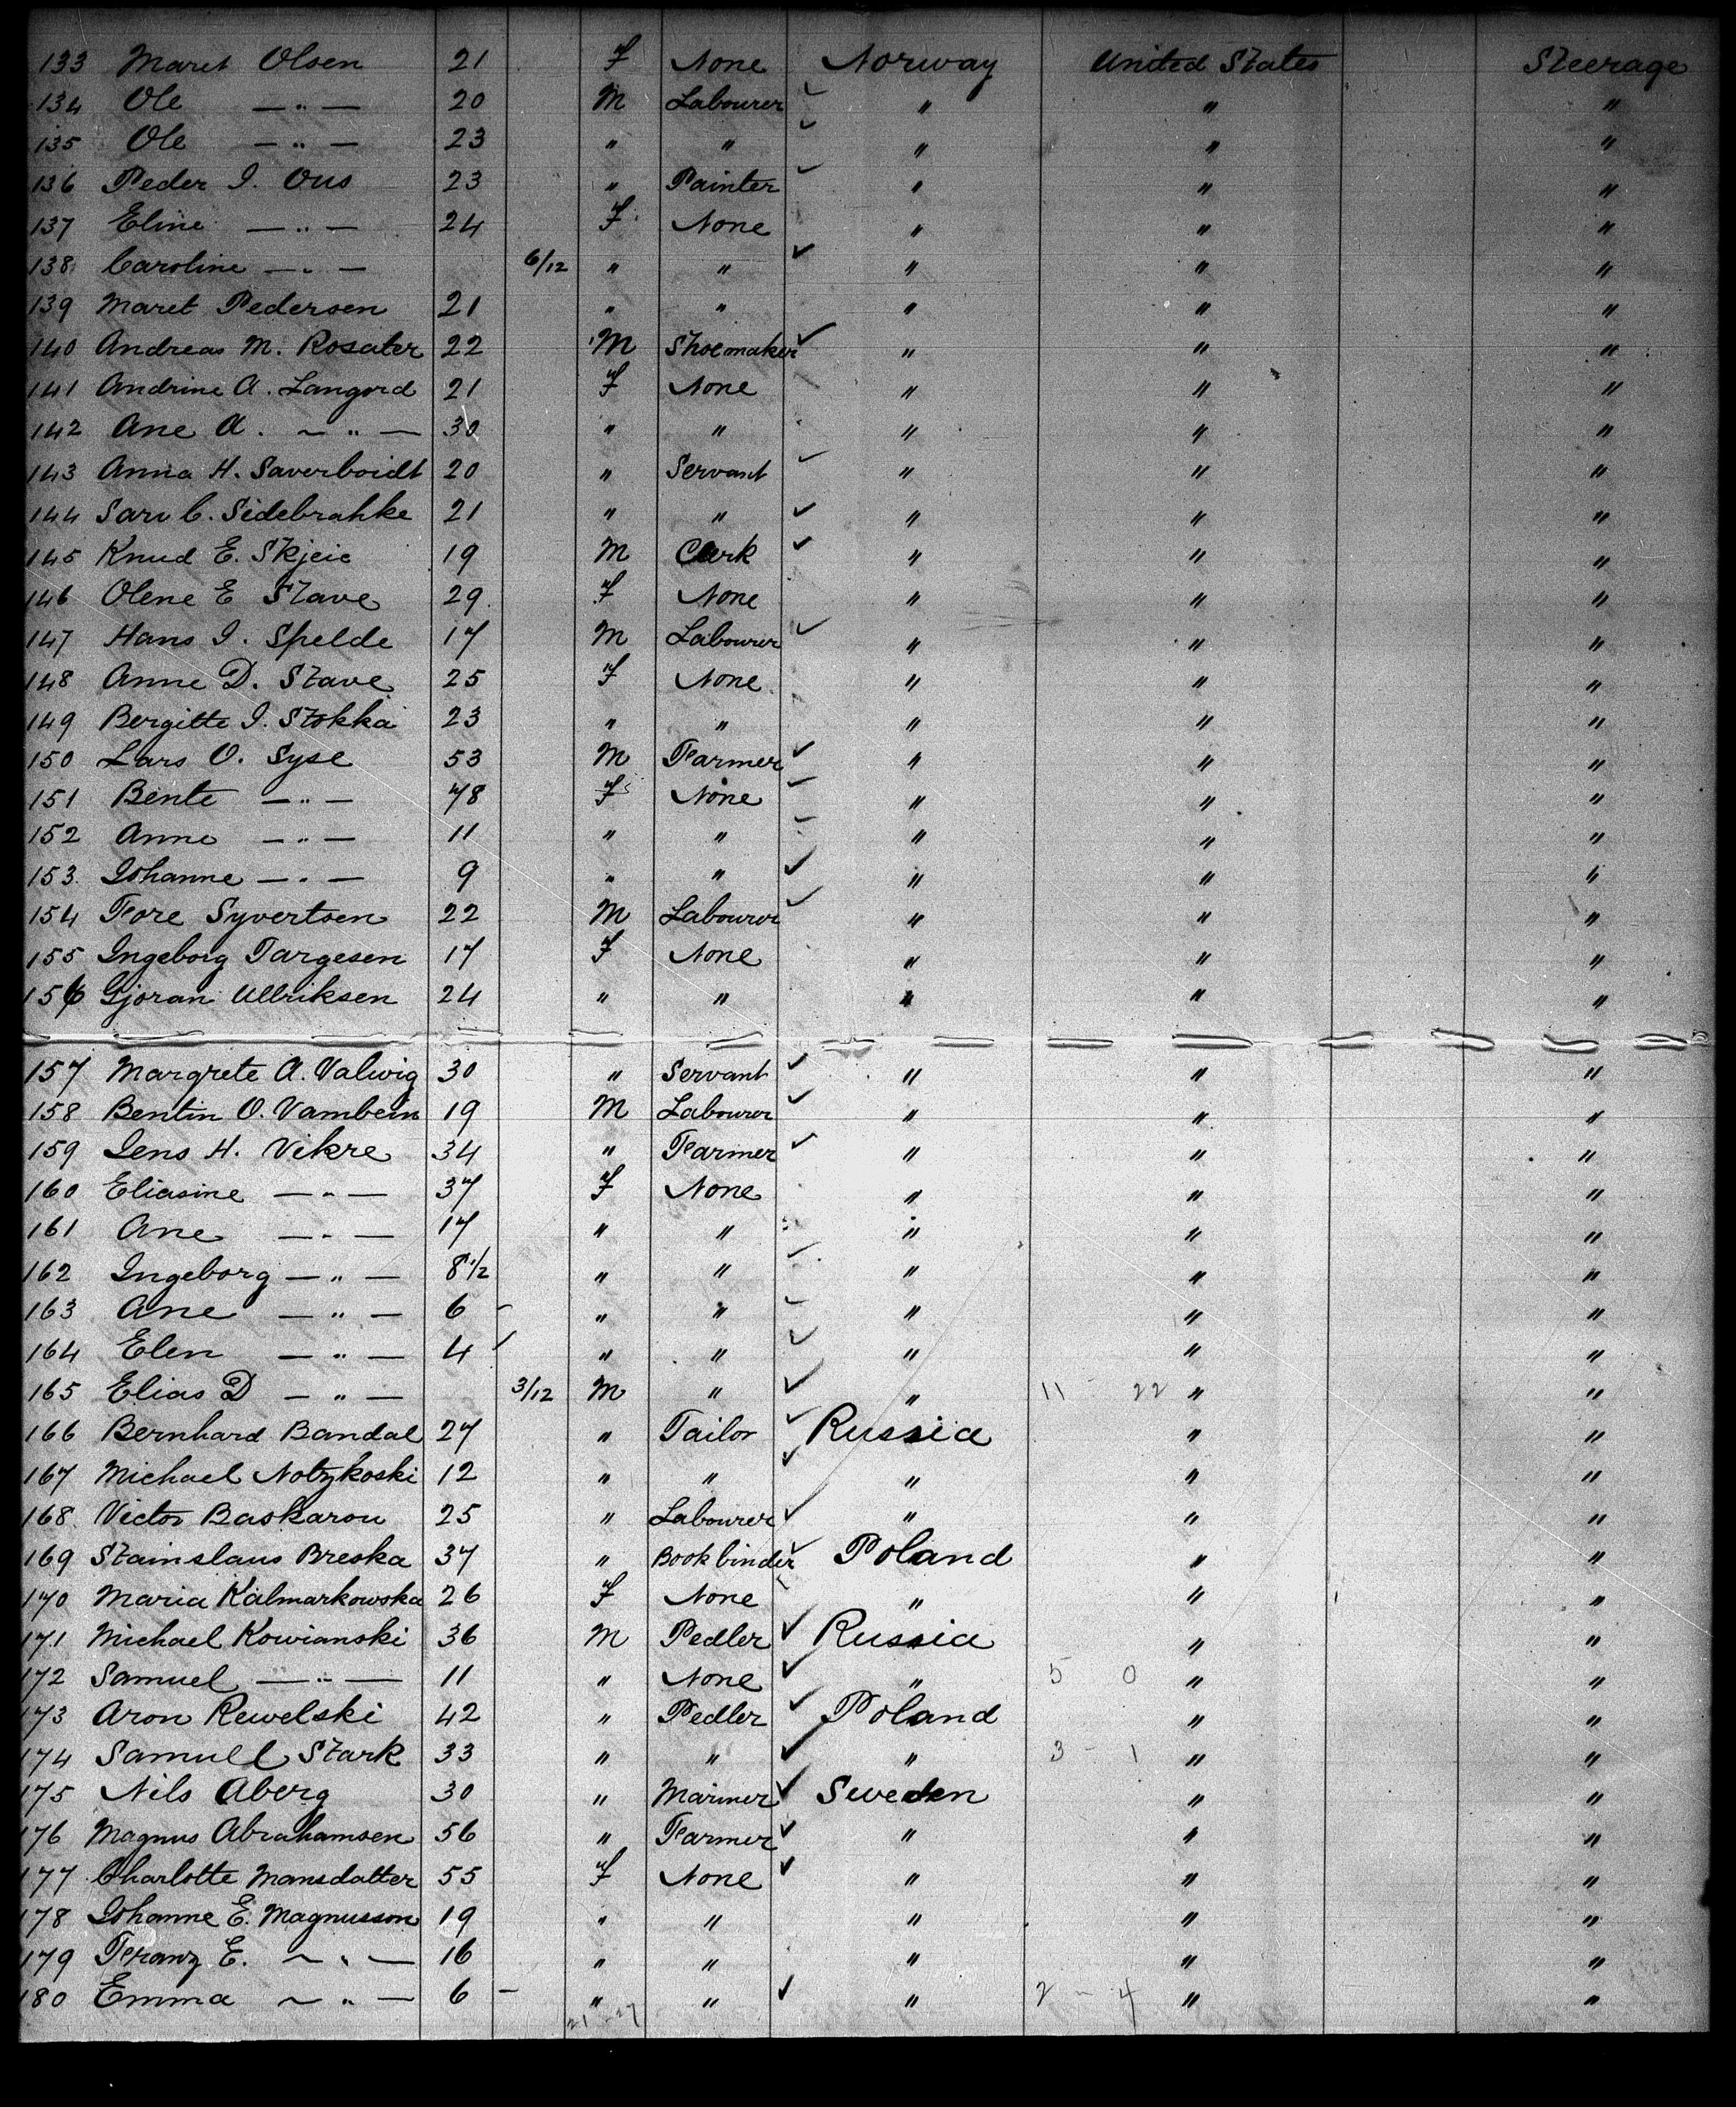 133 Maret Olsen 21 F None Norway United States Steerage
134 Ole — " — 20 M Labourer " " "
135 Ole — " — 23 " " " " "
136 Peder I. Ous 23 " Painter " " "
137 Eline — " — 24 F None " " "
138 Caroline — " — 6/12 " " " " "
139 Maret Pedersen 21 " " " " "
140 Andreas M. Rosater 22 M Shoemaker " " "
141 Andrine A. Langord 21 F None " " "
142 Ane A. — " — 30 " " " " "
143 Anna H. Saverboidt 20 " Servant " " "
144 Saru C. Sidebrahke 21 " " " " "
145 Knud E. Skjeie 19 M Clerk " " "
146 Olene E Stave 29 F None " " "
147 Hans I. Spelde 17 M Labourer " " "
148 Anne D. Stave 25 F None " " "
149 Bergitte I. Stokka 23 " " " " "
150 Lars O. Syse 53 M Farmer " " "
151 Bente — " — 48 F None " " "
152 Anne — " — 11 " " " " "
153 Johanne — " — 9 " " " " "
154 Tore Syvertsen 22 M Labourer " " "
155 Ingeborg Targesen 17 F None " " "
156 Gjoran Ullriksen 24 " " " " "
157 Margrete A. Valwig 30 " Servant " " "
158 Bentin O. Vambein 19 M Labourer " " "
159 Jens H. Vikre 34 " Farmer " " "
160 Eliasine — " — 37 F None " " "
161 Ane — " — 17 " " " " "
162 Ingeborg — " — 8 1/2 " " " " "
163 Ane — " — 6 " " " " "
164 Elen — " — 4 " " " " "
165 Elias D — " — 3/12 M " " 11 - 22 " "
166 Bernhard Bandal 27 " Tailor Russia " "
167 Michael Notzkoski 12 " " " " "
168 Victor Baskarou 25 " Labourer " " "
169 Stainslaus Breska 37 " Bookbinder Poland " "
170 Maria Kalmarkowska 26 F None " " "
171 Michael Kowianski 36 M Pedler Russia " "
172 Samuel — " — 11 " None " 5 0 " "
173 Aron Rewelski 42 " Pedler Poland " "
174 Samuel Stark 33 " " " 3 - 1 " "
175 Nils Aberg 30 " Mariner Sweden " "
176 Magnus Abrahamsen 56 " Farmer " " "
177 Charlotte Mansdatter 55 F None " " "
178 Johanne E. Magnusson 19 " " " " "
179 Franz E. — " — 16 " " " " "
180 Emma — " — 6 " " " 2 - 4 " "
21 - 27